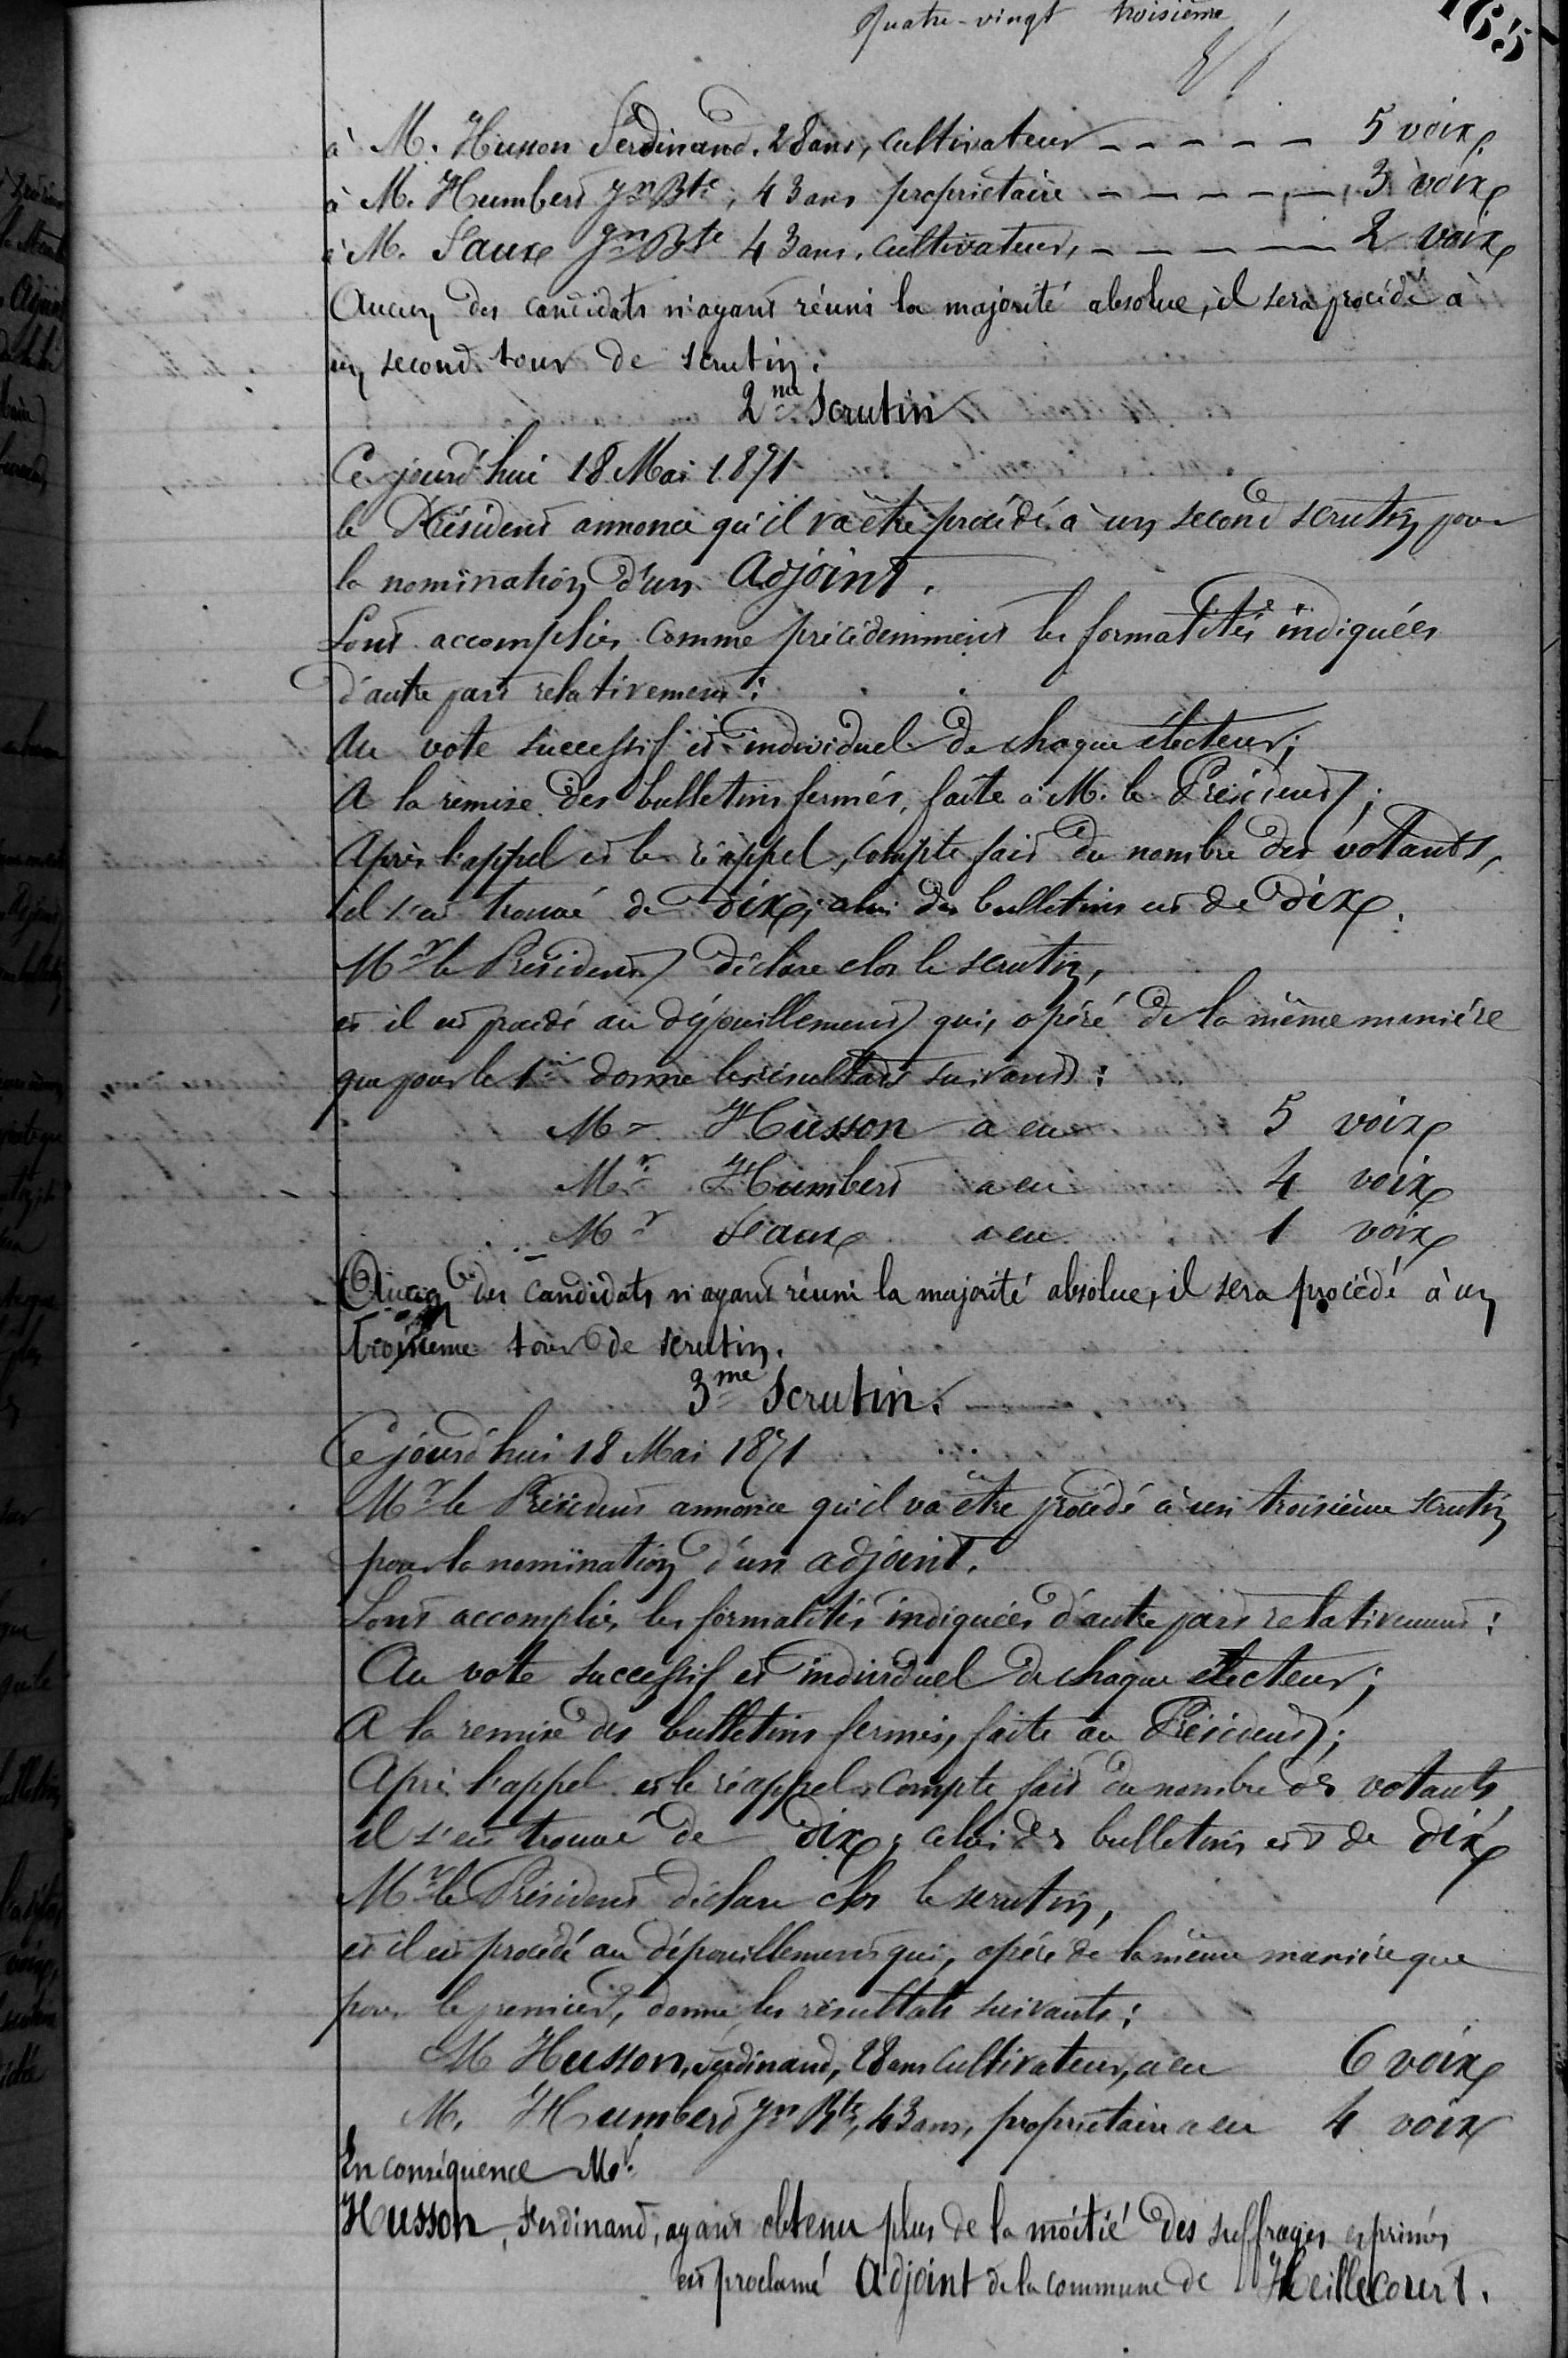 Quatre-vingt troisième
165
à M. Husson Ferdinand, 28 ans, cultivateur - - - - - 5 voix
à M. Humbert Jn Bte, 43 ans propriétaire - - - - - 3 voix
à M. Faux Jn Bte 43 ans, cultivateur, - - - - - 2 voix
Aucun des candidats n'ayant réuni la majorité absolue, il sera procédé à
un second tour de scrutin.
2me Scrutin
Ce jourd'hui 18 Mai 1871
le Président annonce qu'il va être procédé à un second scrutin pour
la nomination d'un Adjoint.
Sont accomplies comme précédemment les formalités indiquées
d'autre part relativement :
Au vote successif et individuel de chaque électeur ;
A la remise des bulletins fermés, faite à M. le Président ;
Après l'appel et le réappel, compte fait du nombre des votants,
il s'est trouvé de dix, celui des bulletins est de dix.
Mr le Président déclare clos le scrutin,
et il est procédé au dépouillement qui, opéré de la même manière
que pour le 1er donne les résultats suivants :
Mr Husson a eu 5 voix
Mr Humbert a eu 4 voix
Mr Faux a eu 1 voix
Aucun des candidats n'ayant réuni la majorité absolue, il sera procédé à un
troisième tour de scrutin.
3me Scrutin.
Ce jourd'hui 18 Mai 1871
Mr le Président annonce qu'il va être procédé à un troisième scrutin
pour la nomination d'un adjoint.
Sont accomplies les formalités indiquées d'autre part relativement :
Au vote successif et individuel de chaque électeur ;
A la remise des bulletins fermés, faite au Président ;
Après l'appel et le réappel, compte fait du nombre des votants
il s'est trouvé de dix, celui des bulletins est de dix
Mr le Président déclare clos le scrutin,
et il est procédé au dépouillement qui, opéré de la même manière que
pour le premier, donne les résultats suivants :
M Husson, Ferdinand, 28 ans cultivateur, a eu 6 voix
M. Humbert Jn Bte, 43 ans, propriétaire a eu 4 voix
En conséquence Mr
Husson, Ferdinand, ayant obtenu plus de la moitié des suffrages exprimés
est proclamé Adjoint de la commune de Heillecourt.